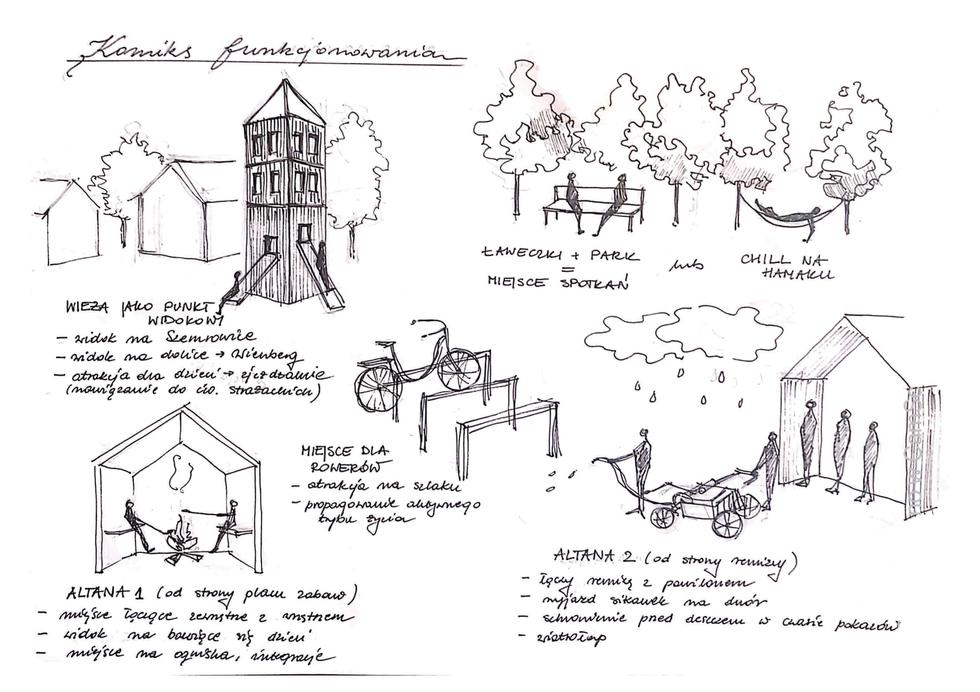 Komiks funkcjonowania
WIEŻA JAKO PUNKT
WIDOKOWY
- widok na Szemrowice
- widok na dolice → Wienberg
- atrakcja dla dzieci → zjeżdżalnie
(nawiązanie do ćw. strażackich)
ŁAWECZKI + PARK
=
MIEJSCE SPOTKAŃ
lub
CHILL NA
HAMAKU
MIEJSCE DLA
ROWERÓW
- atrakcja na szlaku
- propagowanie aktywnego
trybu życia
ALTANA 1 (od strony placu zabaw)
- miejsce łączące zewnętrze z wnętrzem
- widok na bawiące się dzieci
- miejsce na ogniska, integracje
ALTANA 2 (od strony remizy)
- łączy remizę z pawilonem
- wyjazd sikawek na dwór
- schronienie przed deszczem w czasie pokazów
- wiatrołap